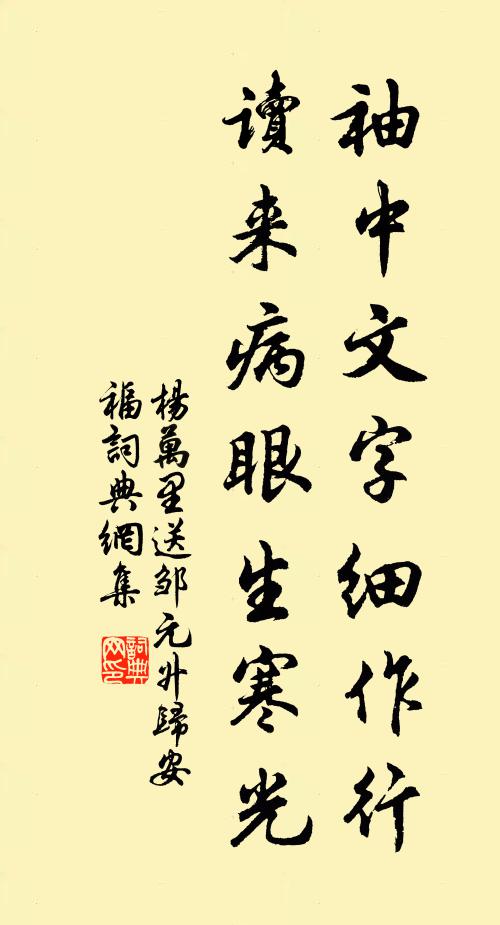 袖中文字细作行
读来病眼生寒光
楊萬里送邹元升歸安
福詞典網集
詞典
网印